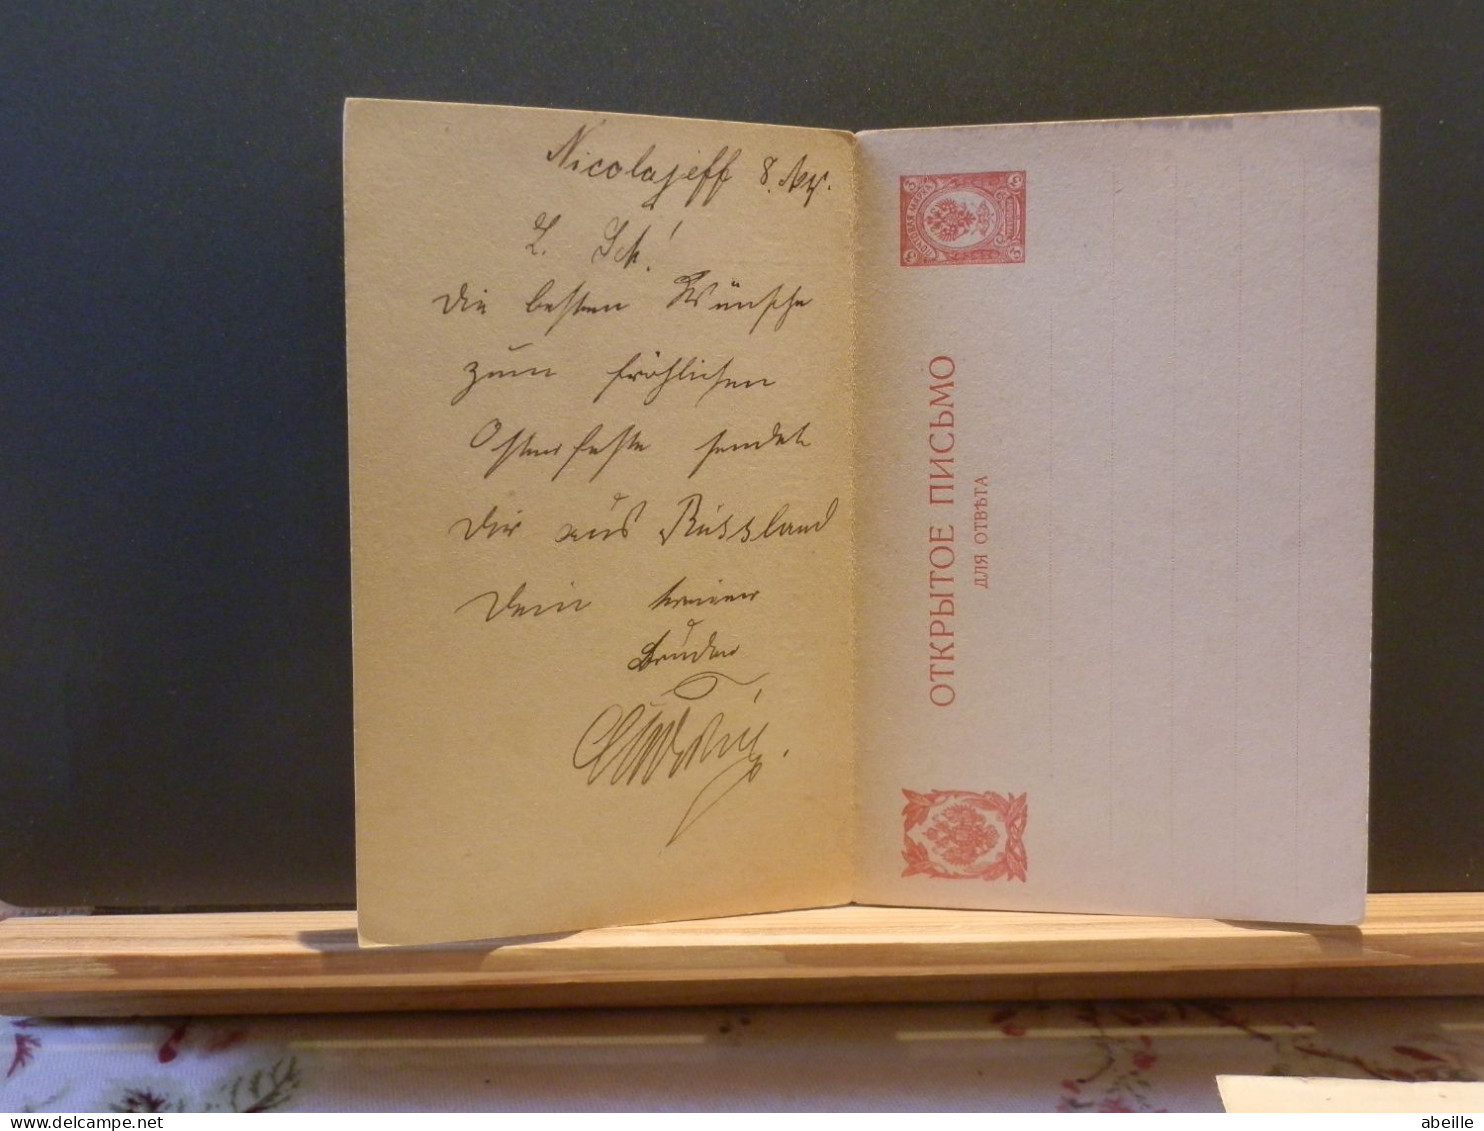 Nicolajeff 8.
L. Sch!
Die besten Wünsche
zum fröhlichen
Osterfeste sendet
Dir aus Russland
Dein treuer
Bruder
ОТКРЫТОЕ ПИСЬМО
ДЛЯ ОТВѢТА
ПОЧТОВАЯ МАРКА
3
3
3
3
www.delcampe.net
abeille